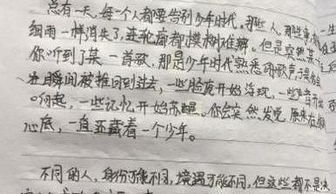 总有一天,每一个人都要告别少年时代,那些人,那些事
细雨一样消失了,连轮廓都模糊难辨,但是突然某一
你听到了某一首歌,那是少年时代熟悉的歌声,
瞬间被推回到过去,一些脸庞开始浮现,一些
响起,一些记忆开始苏醒。你会突然发觉,原来在
心底,一直至藏着一个少年。
不同的人,身份可能不同,境遇可能不同,但这些都不是